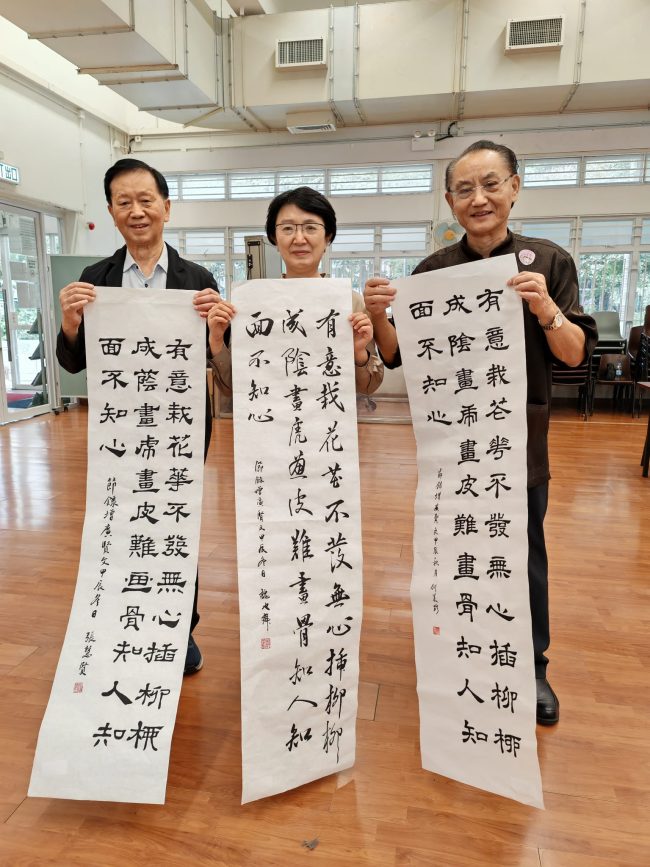 出口
有意栽花華不發無心插柳柳
成蔭畫虎畫皮難画骨知人知
面不知心
節錄增廣賢文甲辰冬日 張慧賢
有意栽花花不發無心插柳柳
成陰畫虎畫皮難畫骨知人知
面不知心
節錄增廣賢文甲辰冬日
有意栽花花不發無心插柳柳
成陰畫虎畫皮難畫骨知人知
面不知心
節錄增廣賢文甲辰秋月